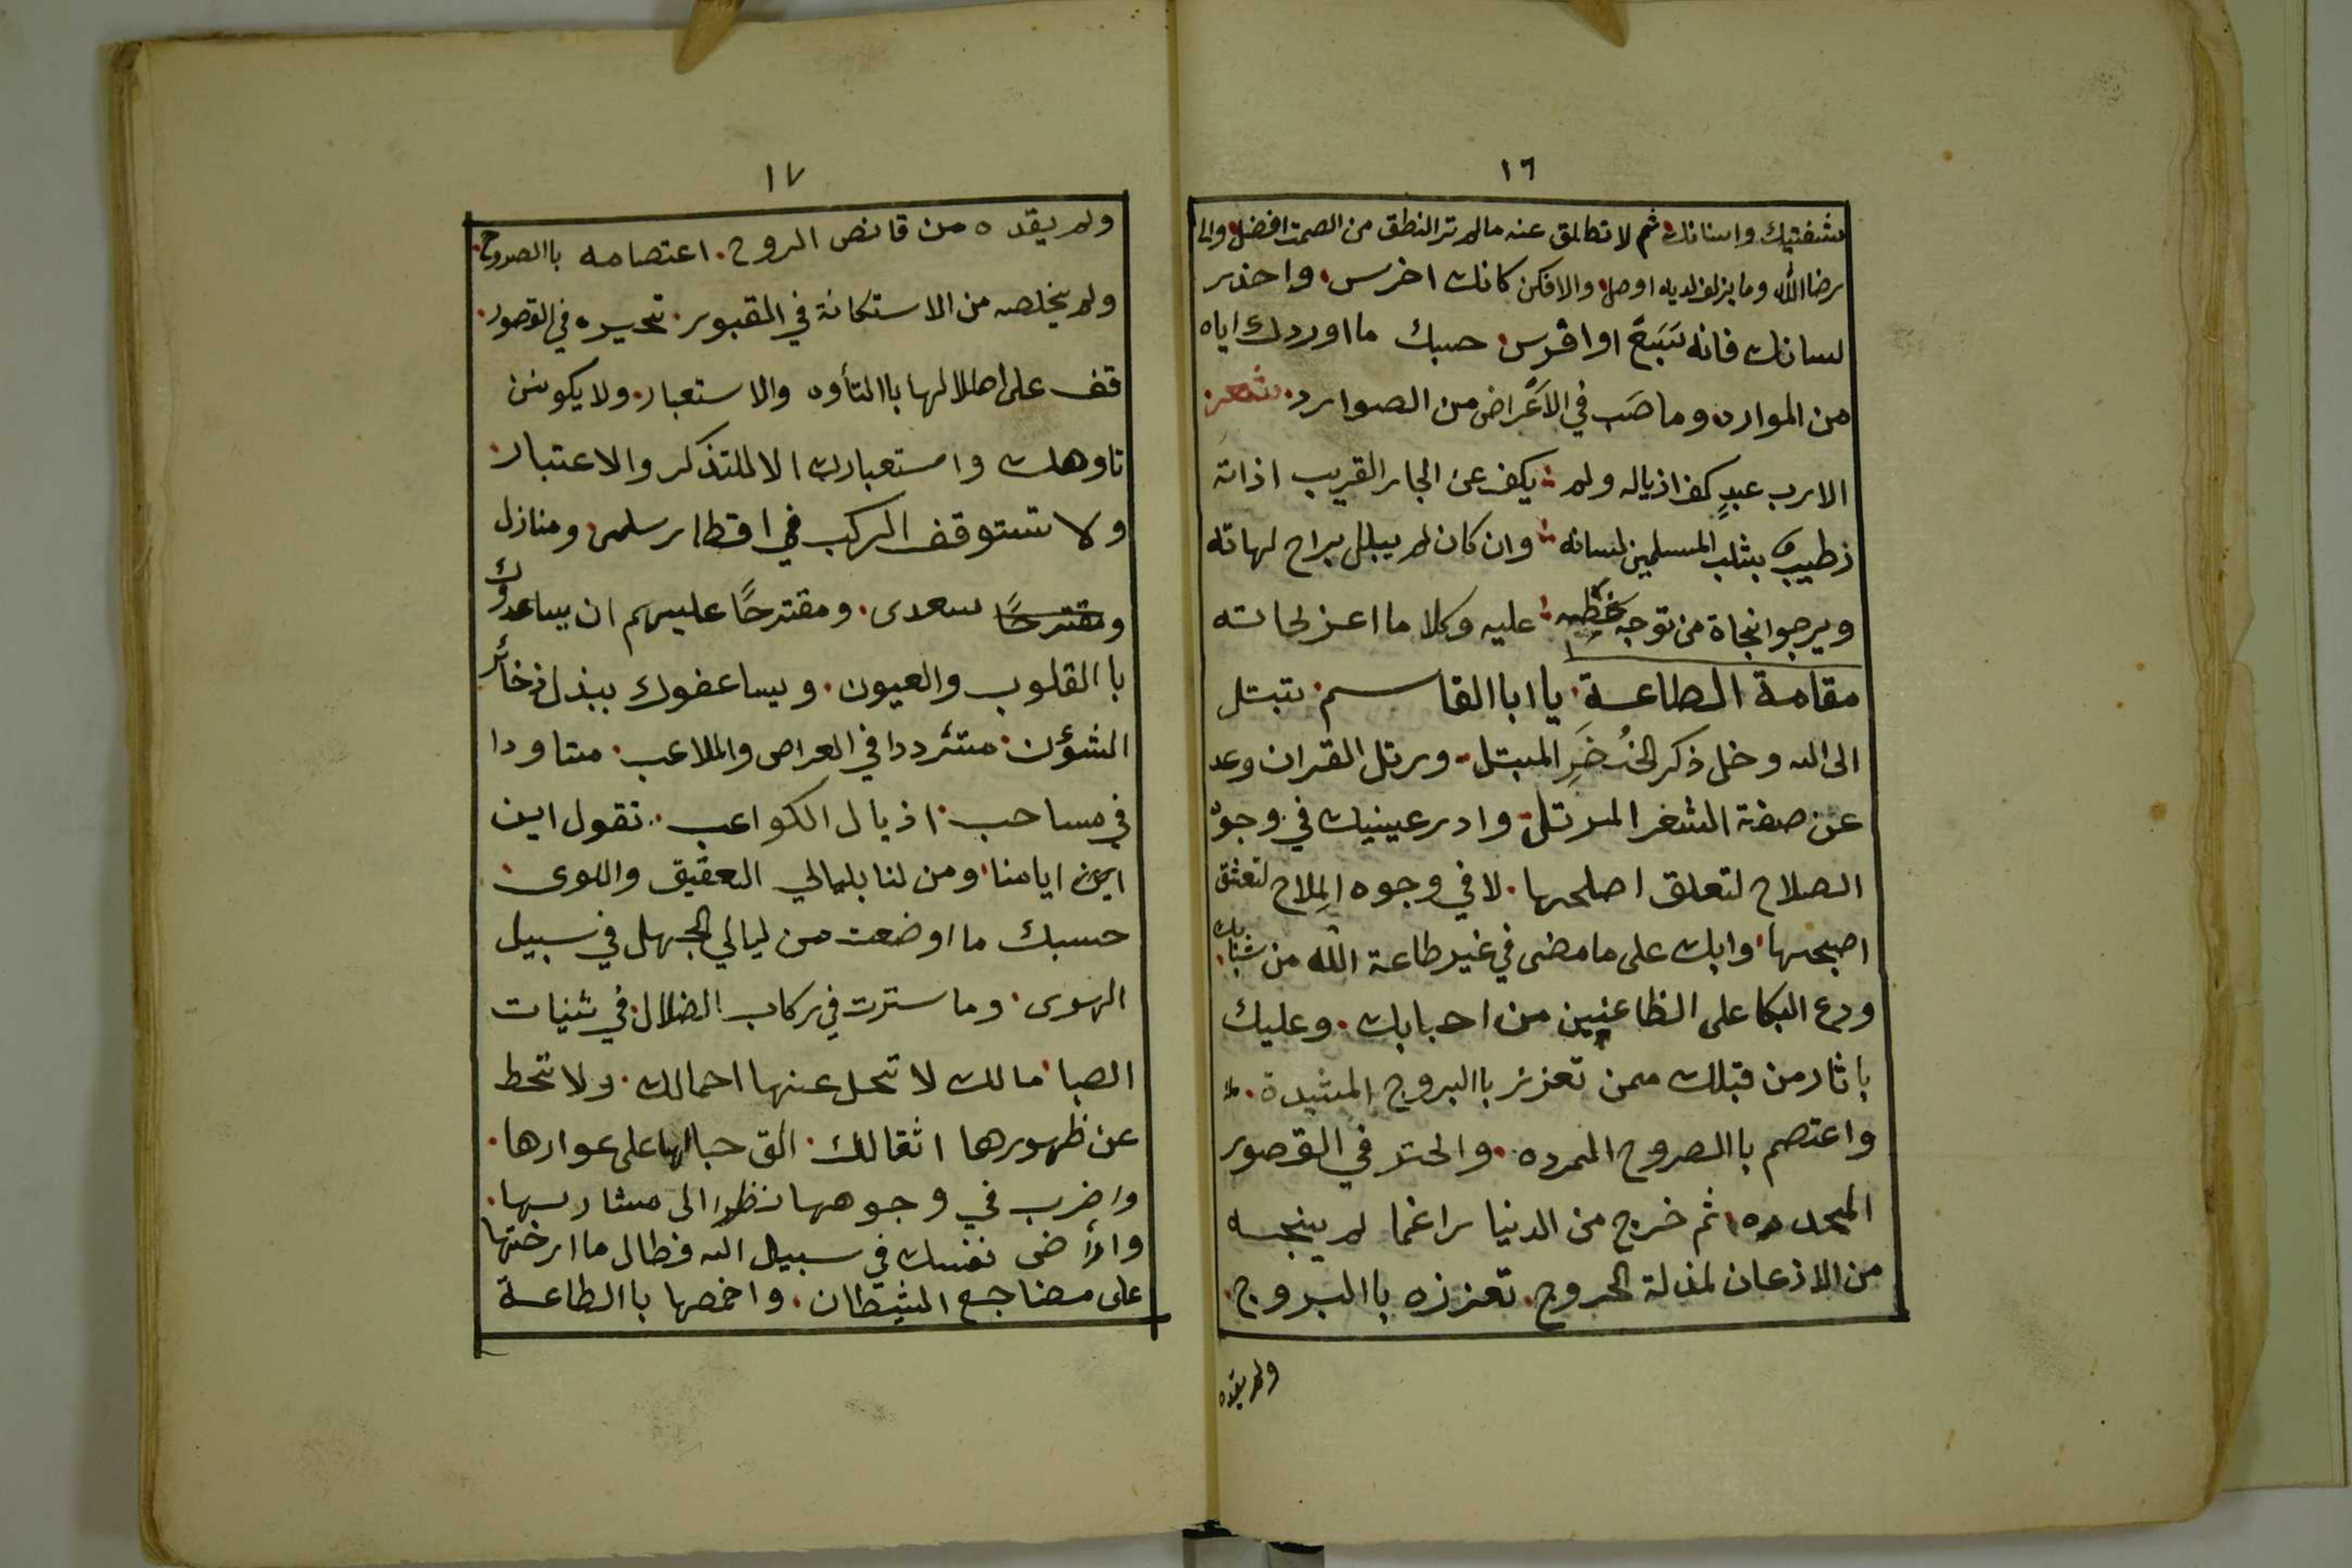 ١٦
شفتيك واسنانك ثم لا تطلق عنه مالم تر النطق من الصمت افضل والى
رضا الله وما يزلف لديه اوصل والا فكن كانك اخرس. واحذر
لسانك فانه سَبُعٌ او افرس. حسبك ما اوردك اياه
من الموارد وما صَب في الاَعْراض من الصوارد. شعر
الا رب عبدٍ كف اذياله ولم : يكف عن الجار القريب اذاته
رطيب بثلب المسلمين لسانه : وان كان لم يبلل براح لهاته
ويرجوا نجاة من توجه عليه : وكلا ما اعز نجاته
مقامة الطاعة. يا ابا القاسم. تبتل
الى الله وخل ذكر الخَصْرِ المبتل. ورتل القران وعد
عن صفة الثغر المرتل. وادر عينيك في وجوه
الصلاح لتعلق اصلحها. لا في وجوه المِلاح لتعشق
اصبحها. وابك على ما مضى في غير طاعة الله من شبابك.
ودع البكا على الظاعنين من احبابك. وعليك
باثار من قبلك ممن تعزز باالبروج المشيدة.
واعتصم باالصروح الممرده. والحتر في القصور
المجدده ثم خرج من الدنيا راغما لم ينجه
من الاذعان لمذلة الخروج. تعززه باالبروج.
ولم يقده
١٧
ولم يقده من قانص الروح. اعتصامه باالصروح.
ولم يخلصه من الاستكانة في القبور. تحيره في القصور.
قف على اطلالها باالتأوه والاستعبار. ولا يكونن
تاوهك واستعبارك الا للتذكر والاعتبار.
ولا تستوقف الركب في اقطار سلمى. ومنازل
ومقترحًا سعدى. ومقترحًا عليهم ان يساعدوك
باالقلوب والعيون. ويساعفوك ببذل ذخائر
الشؤن. متردد ا في العراص والملاعب. متاودا
في مساحب. اذيال الكواعب. تقول اين
اين ايامنا ومن لنا بليالي العقيق واللوى.
حسبك ما اوضعت من ليالي الجهل في سبيل
الهوى. وما سترت في ركاب الضلال. في ثنيات
الصبا. مالك لا تحل عنها احمالك. ولا تحط
عن ظهورها اثقالك. الق حبالها على عوارها.
واضرب في وجوهها نظرا الى مشاربها.
وارأض نفسك في سبيل الله فطال ما ارخيتها
على مضاجع الشيطان. واحمصها باالطاعة